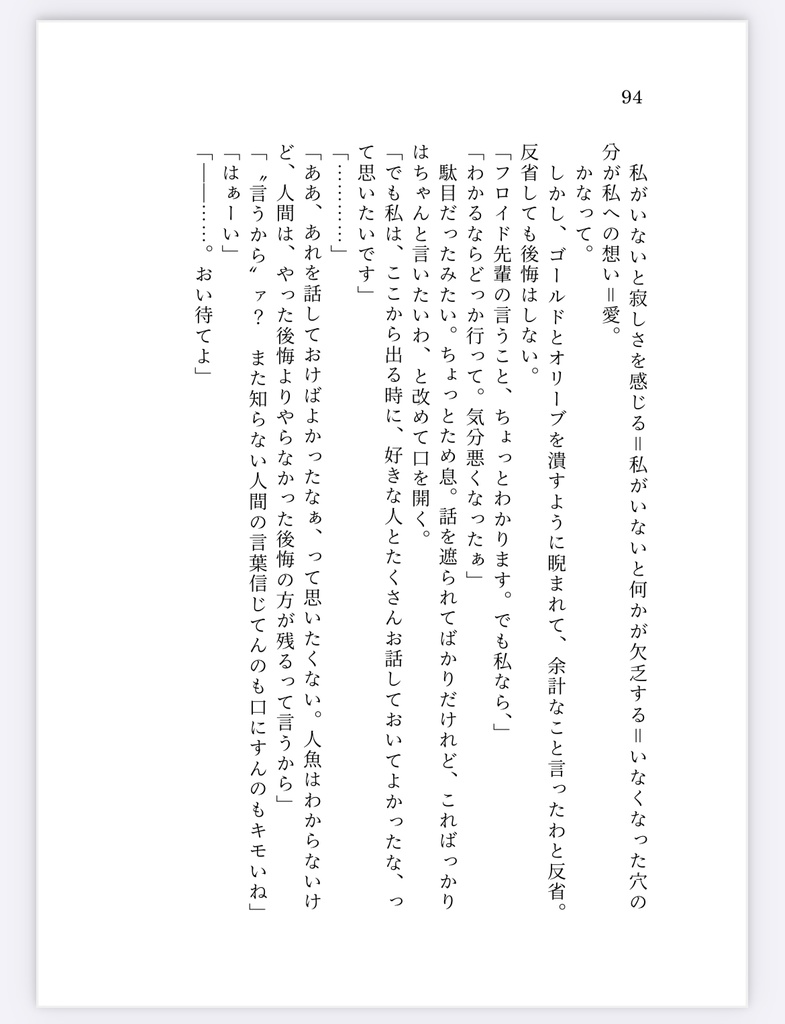 94
　私がいないと寂しさを感じる＝私がいないと何かが欠乏する＝いなくなった穴の
分が私への想い＝愛。
　かなって。
　しかし、ゴールドとオリーブを潰すように睨まれて、余計なこと言ったわと反省。
反省しても後悔はしない。
「フロイド先輩の言うこと、ちょっとわかります。でも私なら、」
「わかるならどっか行って。気分悪くなったぁ」
　駄目だったみたい。ちょっとため息。話を遮られてばかりだけれど、こればっかり
はちゃんと言いたいわ、と改めて口を開く。
「でも私は、ここから出る時に、好きな人とたくさんお話しておいてよかったな、っ
て思いたいです」
「…………」
「ああ、あれを話しておけばよかったなぁ、って思いたくない。人魚はわからないけ
ど、人間は、やった後悔よりやらなかった後悔の方が残るって言うから」
「〝言うから〟ァ？　また知らない人間の言葉信じてんのも口にすんのもキモいね」
「はぁーい」
「――……。おい待てよ」